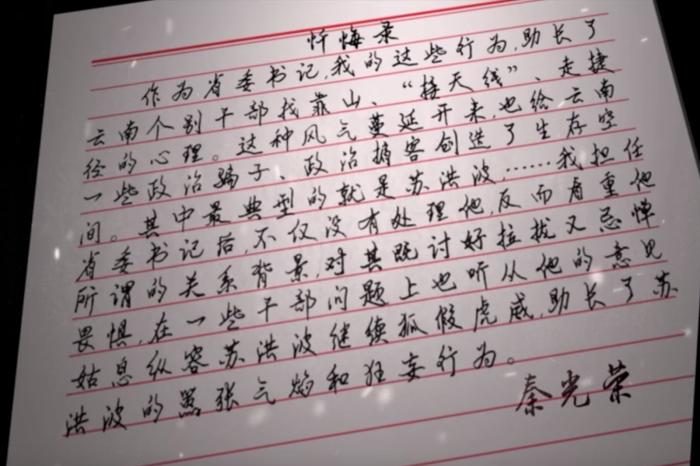 忏悔录
作为省委书记,我的这些行为,助长了
云南个别干部找靠山、“接天线”、走捷
径的心理。这种风气蔓延开来,也给云南
一些政治骗子、政治掮客创造了生存空
间。其中最典型的就是苏洪波,……我担任
省委书记后,不仅没有处理他,反而看重他
所谓的关系背景,对其既讨好拉拢又忌惮
畏惧,在一些干部问题上也听从他的意见
姑息纵容苏洪波继续狐假虎威,助长了苏
洪波的嚣张气焰和狂妄行为。
秦光荣